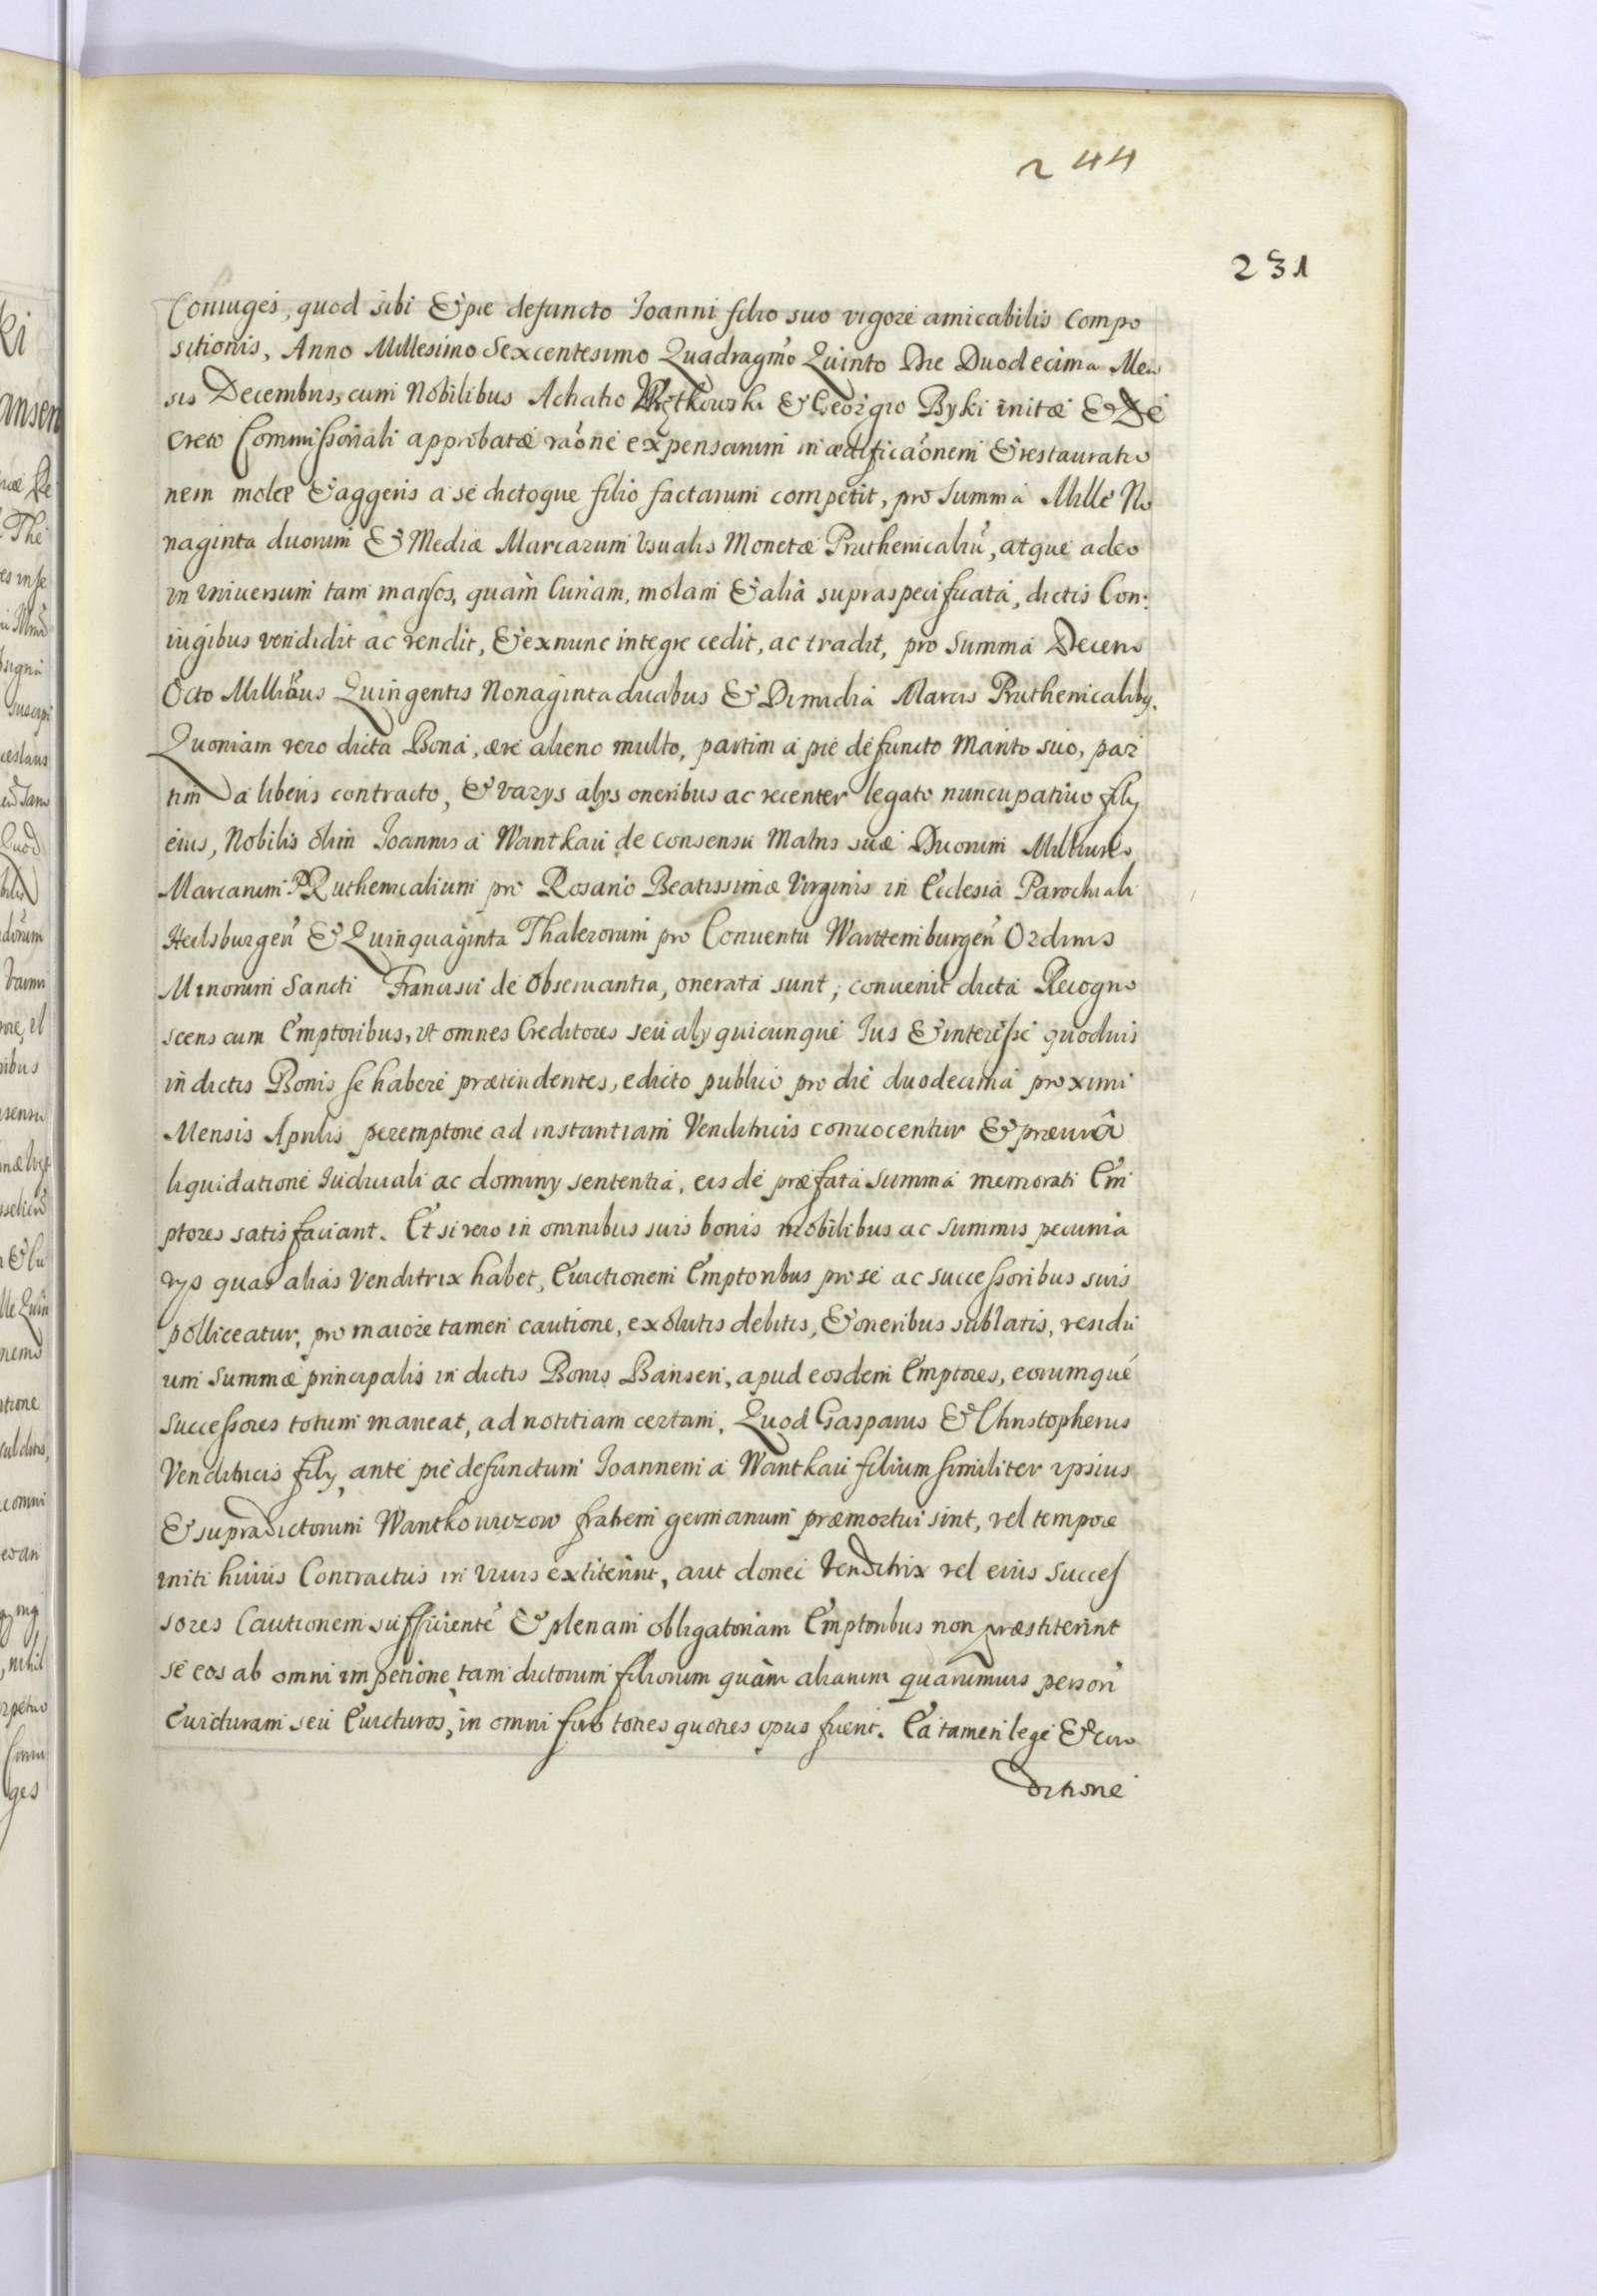 244
231
Coniuges, quod sibi & pie defuncto Ioanni filio suo vigore amicabilis Compo
sitionis, Anno Millesimo Sexcentesimo Quadragmo Quinto Die Duodecima Men
sis Decembris, cum Nobilibus Achatio & Georgio Byki initæ & De
creto Commissoriali approbatæ raone expensarum in ædificaonem & restauratio
nem molæ & aggeris a se dictoque filio factarum competit, pro Summa Mille No
naginta duorum & Mediæ Marcarum Usualis Monetæ Pruthenicaliu, atque adeo
in universum tam mansos, quàm Curiam, molam & alia supraspecificata, dictis Con:
iugibus vendidit ac vendit, & exnunc integre cedit, ac tradit, pro Summa Decem
Octo Millibus Quingentis Nonaginta duabus & Dimidia Marcis Pruthenicaliby.
Quoniam vero dicta Bona, ære alieno multo, partim a pie defuncto Marito suo, par
tim a liberis contracto, & varys alys oneribus ac recenter legato nuncupativo fily
eius, Nobilis olim Ioannis a Wantkaü de consensu Matris suæ Duorum Millium
Marcarum Pruthenicalium pro Rosario Beatissimæ Virginis in Ecclesia Parochiali
Heilsburgen & Quinquaginta Thalerorum pro Conventu Warttemburgen Ordinis
Minorum Sancti Francisci de Observantia, onerata sunt, convenit dicta Recogno
scens cum Emptoribus, ut omnes Creditores seu aly quicunque Ius & interesse quodvis
in dictis Bonis se habere prætendentes, edicto publico pro die duodecima proximi
Mensis Aprilis peremptorie ad instantiam Venditricis convocentur & prævia
liquidatione Iudiciali ac dominy sententia, eis de præfata Summa memorati Em
ptores satisfaciant. Et si vero in omnibus suis bonis mobilibus ac Summis pecunia
rys quas alias Venditrix habet, Evictionem Emptoribus pro se ac successoribus suis
polliceatur, pro maiore tamen cautione, exolutis debitis, & oneribus sublatis, residu
um Summæ principalis in dictis Bonis Bansen, apud eosdem Emptores, eorumque
Successores totum maneat, ad notitiam certam, Quod Gasparus & Christopherus
Venditricis fily, ante pie defunctum Ioannem a Wantkaü filium similiter ipsius
& supradictorum Wantkowiczow fratrem germanum præmortui sint, vel tempore
initi huius Contractus in vivis extiterint, aut donec Venditrix vel eius Succes
sores Cautionem sufficiente & plenam obligatoriam Emptoribus non præstiterint
se eos ab omni impetione tam dictorum filiorum quàm aliarum quarumvis person
Evicturam seu Evicturos, in omni foro toties quoties opus fuerit. Ea tamen lege & con
ditione